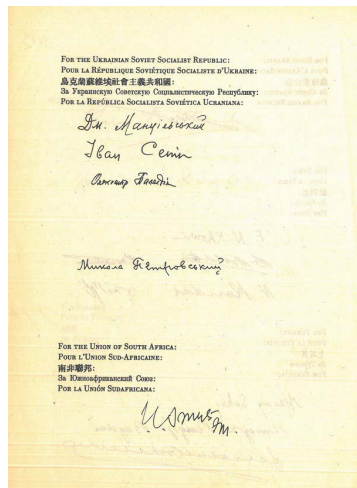 FOR THE UKRAINIAN SOVIET SOCIALIST REPUBLIC:
POUR LA RÉPUBLIQUE SOVIÉTIQUE SOCIALISTE D'UKRAINE:
烏克蘭蘇維埃社會主義共和國:
За Украинскую Советскую Социалистическую Республику:
POR LA REPÚBLICA SOCIALISTA SOVIÉTICA UCRANIANA:
Дм. Мануїльський
Іван Сенін
Олександр Палладін
Микола Петровський
FOR THE UNION OF SOUTH AFRICA:
POUR L'UNION SUD-AFRICAINE:
南非聯邦:
За Южноафриканский Союз:
POR LA UNIÓN SUDAFRICANA: